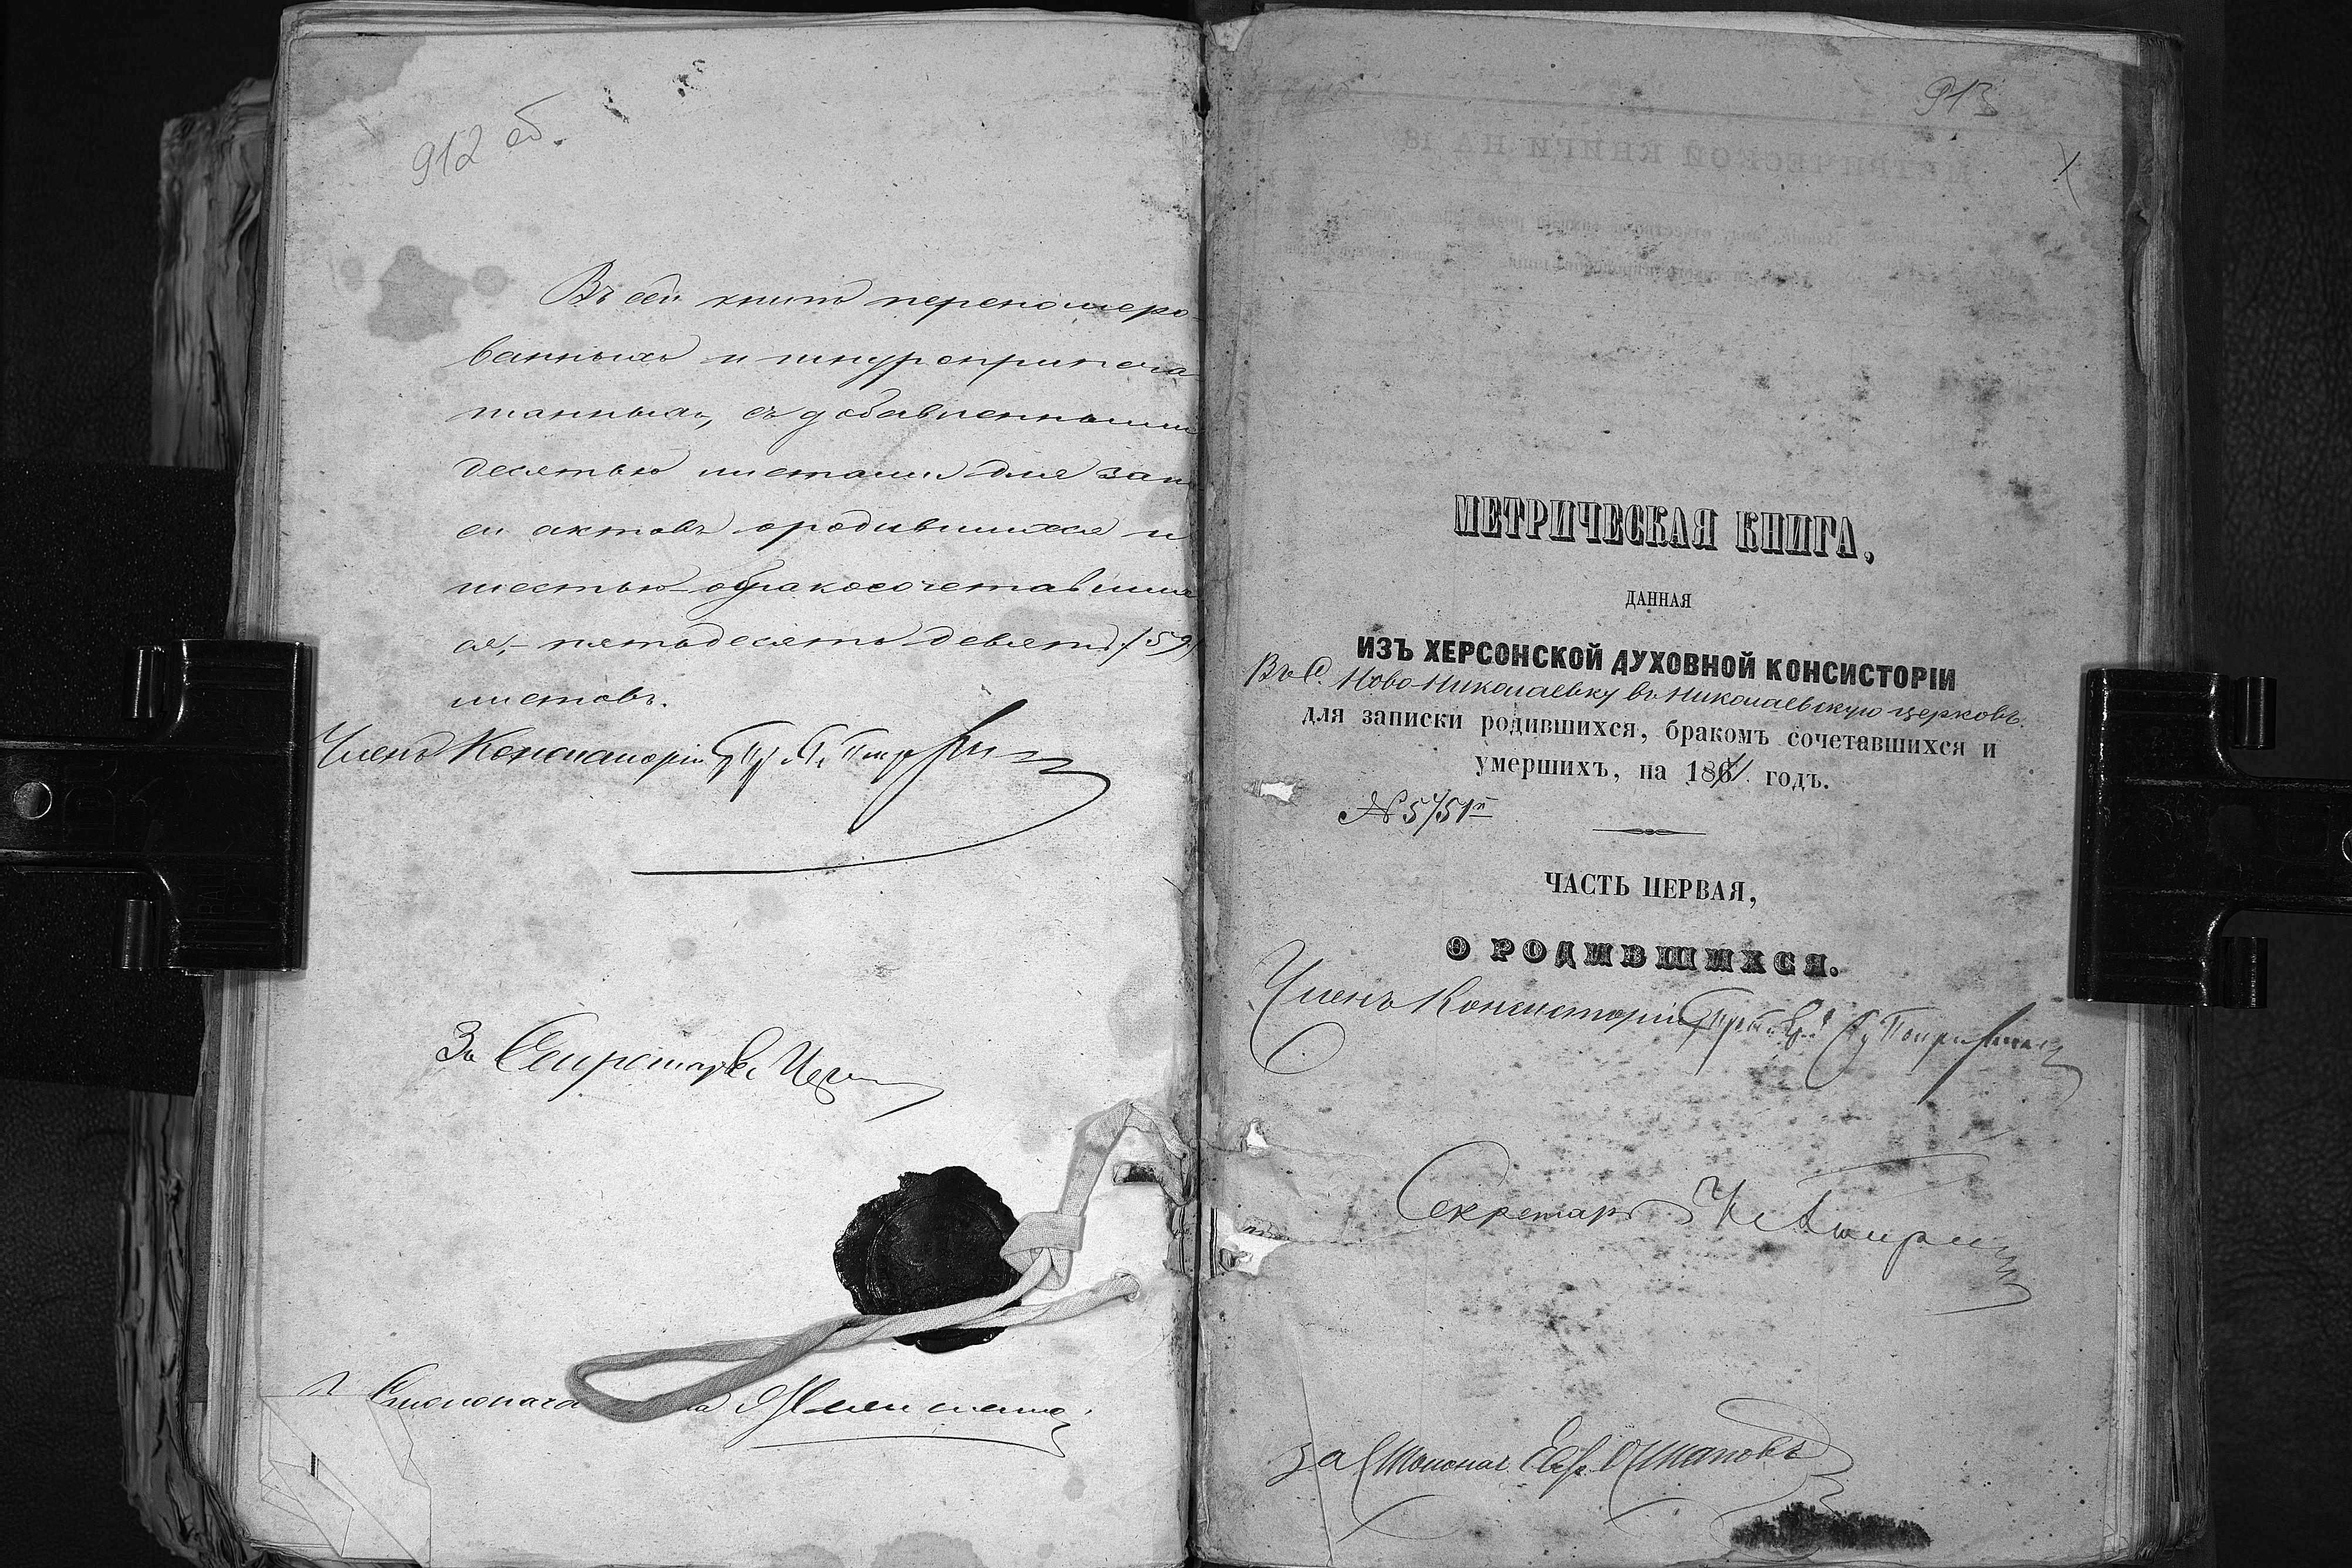 912 об.
Въ сей книгѣ перенумеро-
ванныхъ и шнуроприпеча-
танныхъ, съ добавленными
десятью листами для запи
си актовъ о родившихся и
шестью о бракосочетавших
ся, - пятьдесятъ девять /59/
листовъ.
Членъ Консисторіи
За Секретаря
Столоначальника
913
МЕТРИЧЕСКОЙ КНИГИ НА 18
МЕТРИЧЕСКАЯ КНИГА,
ДАННАЯ
ИЗЪ ХЕРСОНСКОЙ ДУХОВНОЙ КОНСИСТОРІИ
Въ С. Ново-Николаевку въ Николаевскую церковь.
для записки родившихся, бракомъ сочетавшихся и
умершихъ, на 1861 годъ.
№ 5751й
ЧАСТЬ ПЕРВАЯ,
О РОДИВШИХСЯ.
Членъ Консисторіи
Секретарь
За Столонач.